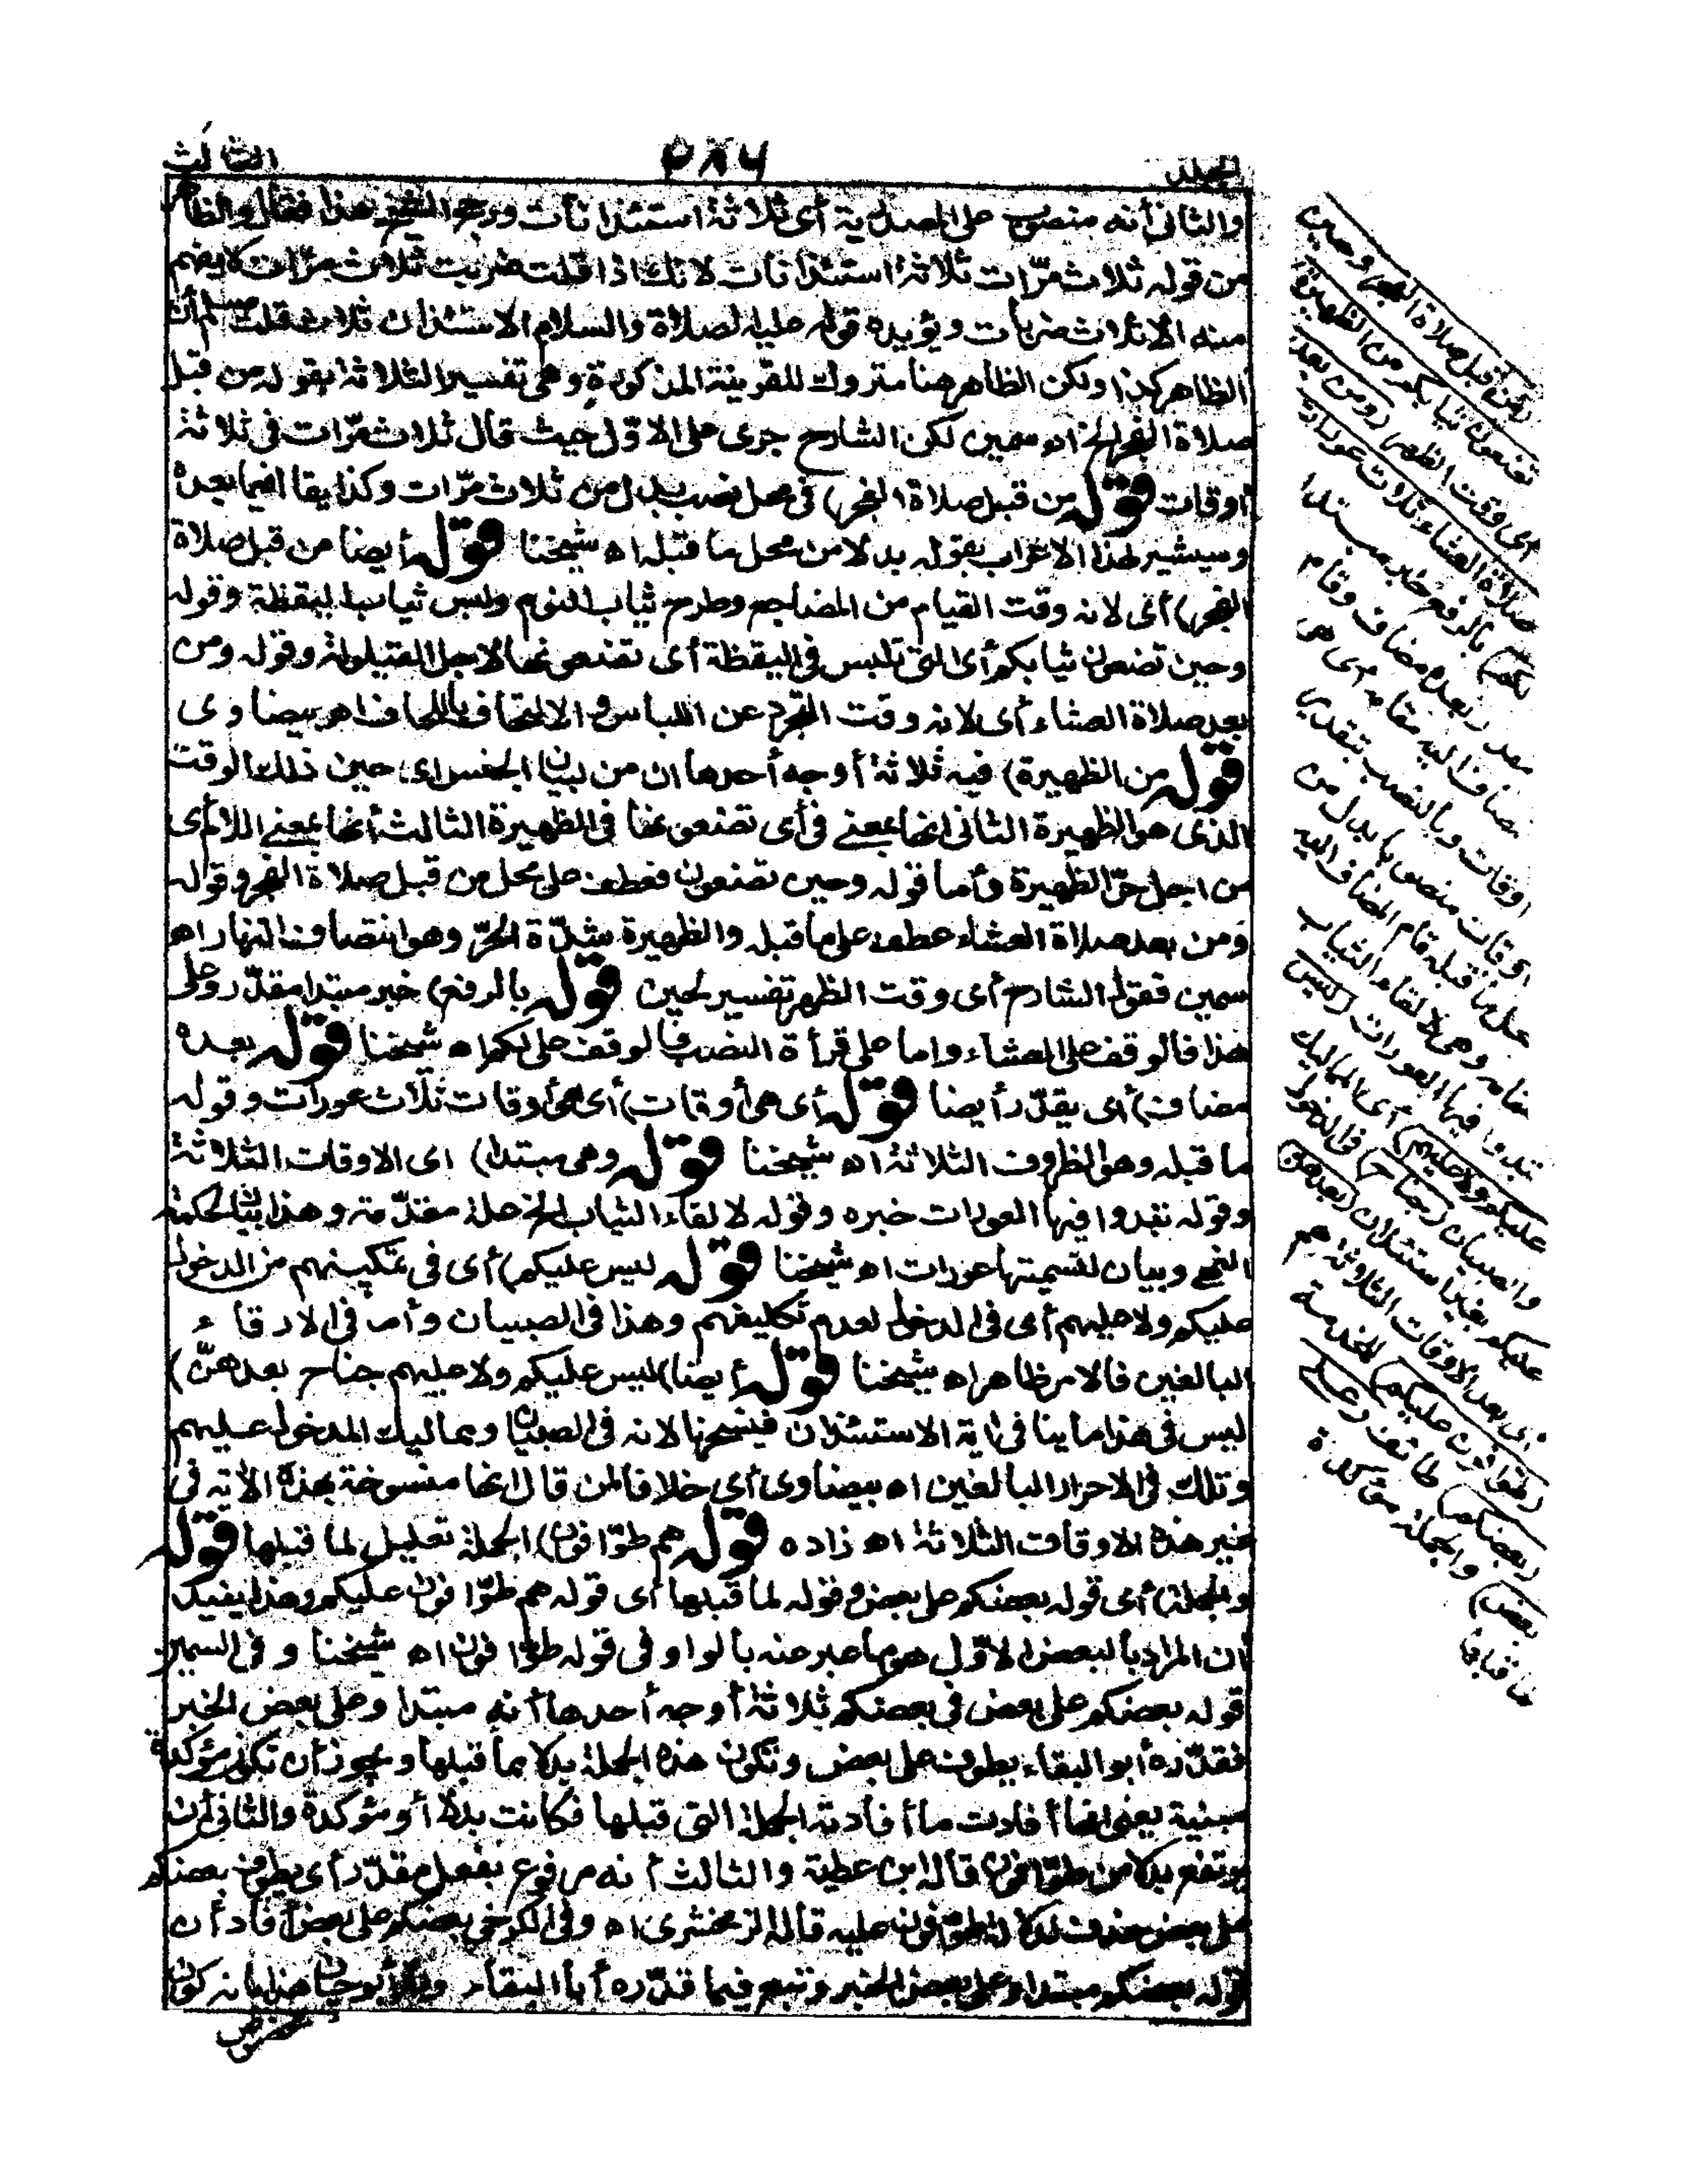 المجلد
٣٨٦
الثالث
والثانى أنه منصوب على المصدرية أى ثلاثة استئذانات ورجح الشيخ هذا فقال والظاهر
من قوله ثلاث مرّات ثلاثة استئذانات لانك اذا قلت ضربت ثلاث مرّات لا يفهم
منه الا ثلاث ضربات ويؤيده قوله عليه الصلاة والسلام الاستئذان ثلاث قلت مسلم أن
الظاهر كذا ولكن الظاهر هنا متروك للقرينة المذكورة وهى تفسير الثلاثة بقوله من قبل
صلاة الفجر الخ اه سمين لكن الشارح جرى على الاوّل حيث قال ثلاث مرّات فى ثلاثة
اوقات قوله من قبل صلاة الفجر) فى محل نصب بدل من ثلاث مرّات وكذا يقال فيما بعده
وسيشير لهذا الاعراب بقوله بدلا من محل ما قبله اه شيخنا قوله أيضا من قبل صلاة
الفجر) أى لانه وقت القيام من المضاجع وطرح ثياب النوم ولبس ثياب اليقظة وقوله
وحين تضعون ثيابكم أى التى تلبس فى اليقظة أى تضعونها لاجل القيلولة وقوله ومن
بعد صلاة العشاء أى لانه وقت التجرد عن اللباس والالتحاف باللحاف اه بيضاوى
قوله من الظهيرة) فيه ثلاثة أوجه أحدها ان من لبيان الجنس اى حين ذلك الوقت
الذى هو الظهيرة الثانى انها بمعنى فى أى تضعونها فى الظهيرة الثالث أنها بمعنى اللام أى
من اجل حرّ الظهيرة وأما قوله وحين تضعون فعطف على محل من قبل صلاة الفجر وقوله
ومن بعد صلاة العشاء عطف على ما قبله والظهيرة شدّة الحرّ وهو انتصاف النهار اه
سمين فقول الشارح أى وقت الظهر تفسير لحين قوله بالرفع) خبر مبتدا مقدّر وعلى
هذا فالوقف على العشاء واما على قرأة النصب فالوقف على لكم اه شيخنا قوله بعده
مضاف) أى يقدّر أيضا قوله أى هى أوقات) أى هى أوقات ثلاث عورات وقوله
ما قبله وهو الظروف الثلاثة اه شيخنا قوله وهى مبتدا) اى الاوقات الثلاثة
وقوله تبدوا فيها العورات خبره وقوله لالقاء الثياب الخ علة مقدّمة وهذا بيان لحكمة
النهى وبيان لتسميتها عورات اه شيخنا قوله ليس عليكم) أى فى تمكينهم من الدخول
عليكم ولا عليهم أى فى الدخول لعدم تكليفهم وهذا فى الصبيان وأما فى الارقاء
البالغين فالامر ظاهر اه شيخنا قوله أيضا ليس عليكم ولا عليهم جناح بعدهنّ)
ليس فى هذا ما ينافى اية الاستئذان فينسخها لانه فى الصبيان ومماليك المدخول عليهم
وتلك فى الاحرار البالغين اه بيضاوى أى خلافا لمن قال انها منسوخة بهذه الأية فى
غير هذه الاوقات الثلاثة اه زاده قوله هم طوّافون) الجملة تعليل لما قبلها قوله
والجملة) أى قوله بعضكم على بعض وقوله لما قبلها أى قوله هم طوّافون عليكم وهذا يفيد
أن المراد بالبعض الاوّل هو ما عبر عنه بالواو فى قوله طوّافون اه شيخنا وفى السمين
قوله بعضكم على بعض فى بعضكم ثلاثة أوجه أحدها أنه مبتدا وعلى بعض الخبر
فقدّره أبو البقاء يطوف على بعض وتكون هذه الجملة بدلا مما قبلها ويجوز أن تكون مؤكدة
مبنية يعنى انها أفادت ما أفادته الجملة التى قبلها فكانت بدلا أو مؤكدة والثانى أن
يرتفع بدلا من طوّافون قاله ابن عطية والثالث أنه مرفوع بفعل مقدّر أى يطوف بعضكم
على بعض حذف لدلالة طوّافون عليه قاله الزمخشرى اه وفى الكرخى بعضكم على بعض أفاد أن
قوله بعضكم مبتدا وعلى بعض الخبر وتبع فيما قدّره أبا البقاء وردّ أبو حيان هذا بانه كون
من قبل صلاة الفجر وحين
تضعون ثيابكم من الظهيرة
اى وقت الظهر ومن بعد
صلاة العشاء ثلاث عورات
لكم) بالرفع خبر مبتدا
مقدر بعده مضاف وقام
المضاف اليه مقامه اى هى
اوقات وبالنصب بتقدير
اوقات منصوبا بدل من
محل ما قبله قام المضاف اليه
مقامه وهى لالقاء الثياب
تبدوا فيها العورات (ليس
عليكم ولا عليهم) أى المماليك
والصبيان (جناح) فى الدخول
عليكم بغير استئذان (بعدهن)
اى بعد الاوقات الثلاثة هم
(طوافون عليكم) للخدمة
(بعضكم) طائف (على
بعض) والجملة مؤكدة
لما قبلها